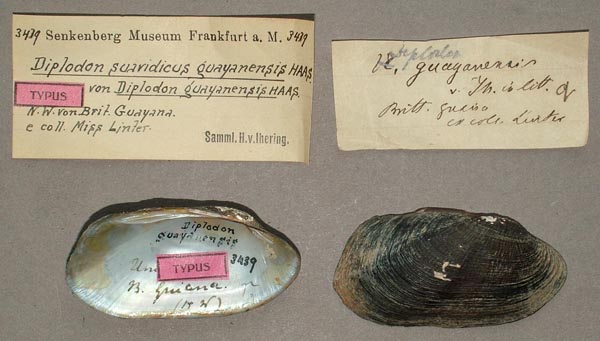 3439 Senkenberg Museum Frankfurt a. M. 3439
Diplodon suavidicus guayanensis HAAS.
TYPUS von Diplodon guayanensis HAAS.
N.W. von Brit. Guayana.
e coll. Miss Linter.
Samml. H.v.Ihering.
Diplodon
guayanensis
v. Ih. i. litt.
Britt. 
ex coll. Linter
Diplodon
guayanensis
TYPUS 3439
B. Guiana.
(N W)